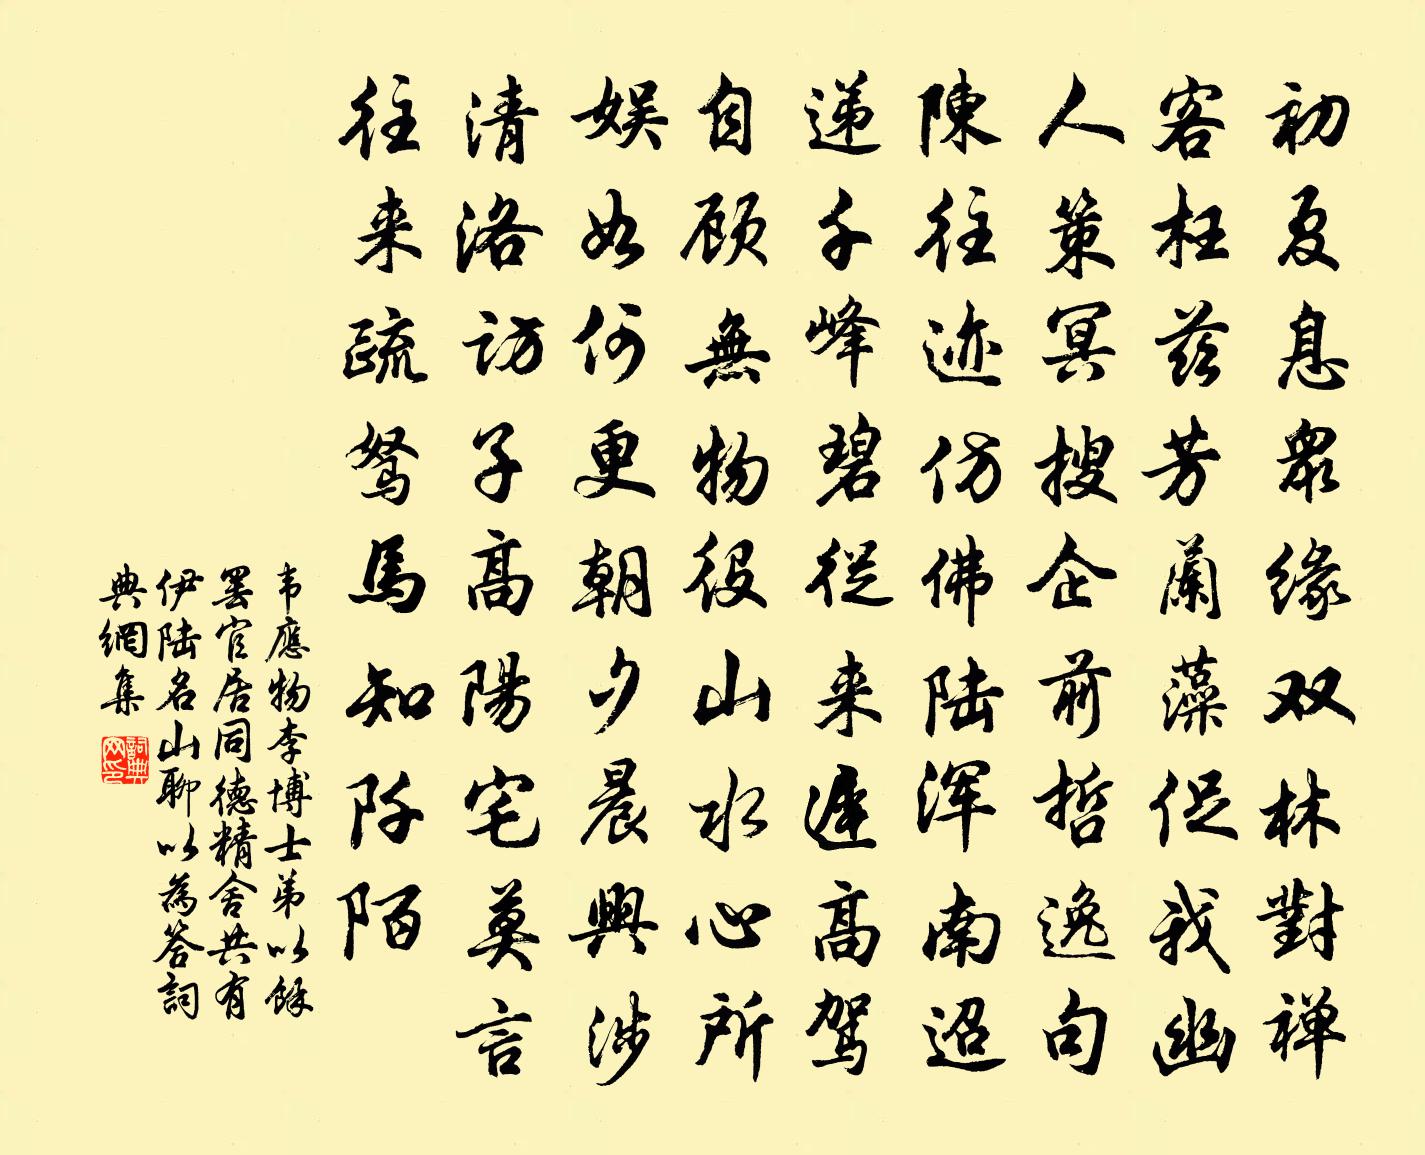 初夏息衆缘双林對禅
客枉兹芳蘭藻促我幽
人策冥搜企前哲逸句
陳往迹仿佛陆浑南迢
递千峰碧從来遲高驾
自顾無物役山水心所
娱如何更朝夕晨興涉
清洛访子高陽宅莫言
往来疏驽馬知阡陌
韦應物李博士弟以餘
罢官居同德精舍共有
伊陆名山聊以為答詞
典網集
詞典网印